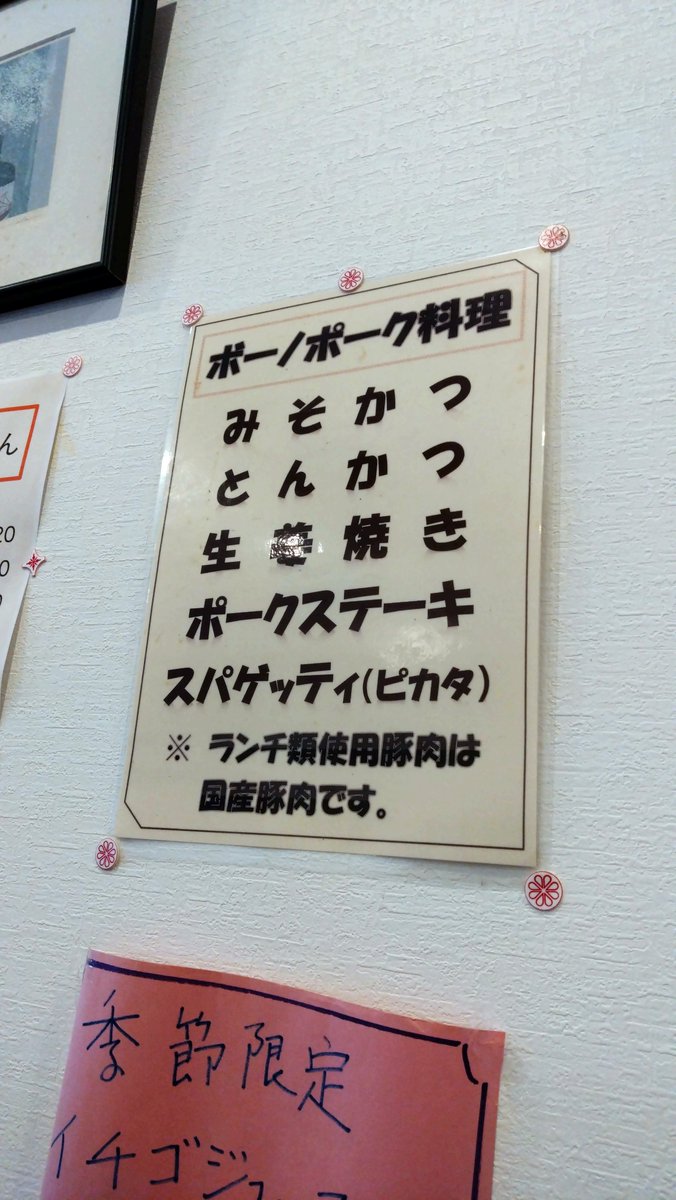 ボーノポーク料理
みそかつ
とんかつ
生姜焼き
ポークステーキ
スパゲッティ(ピカタ)
※ ランチ類使用豚肉は
国産豚肉です。
ん
20
0
季節限定
イチゴジュース